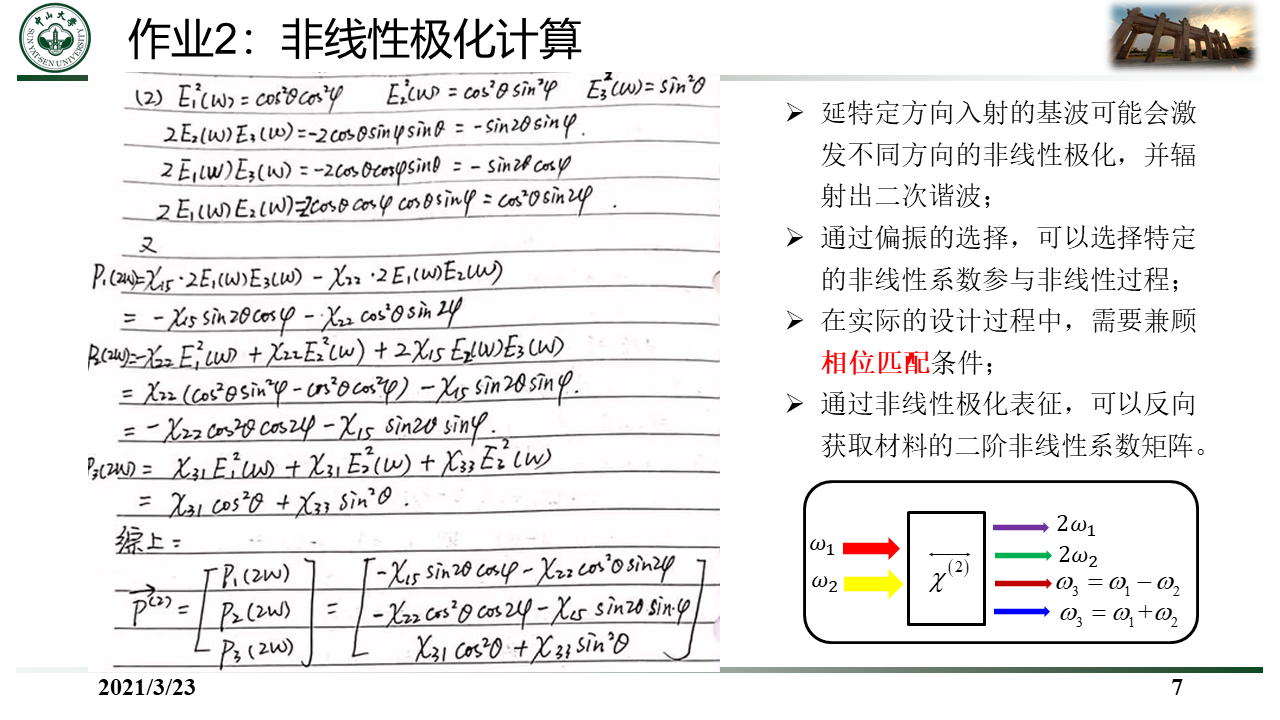 中山大学
SUN YAT-SEN UNIVERSITY
作业2：非线性极化计算
(2) E₁²(ω)=cos²θcos²φ E₂²(ω)=cos²θsin²φ E₃²(ω)=sin²θ
2E₂(ω)E₃(ω)=-2cosθsinφsinθ = -sin2θsinφ.
2E₁(ω)E₃(ω)=-2cosθcosφsinθ = -sin2θcosφ
2E₁(ω)E₂(ω)=2cosθcosφcosθsinφ = cos²θsin2φ.
又
P₁(2ω)=χ₁₅·2E₁(ω)E₃(ω) - χ₂₂·2E₁(ω)E₂(ω)
= -χ₁₅sin2θcosφ - χ₂₂cos²θsin2φ
P₂(2ω)=-χ₂₂E₁²(ω) + χ₂₂E₂²(ω) + 2χ₁₅E₂(ω)E₃(ω)
= χ₂₂(cos²θsin²φ-cos²θcos²φ) - χ₁₅sin2θsinφ.
= -χ₂₂cos²θcos2φ - χ₁₅sin2θsinφ.
P₃(2ω) = χ₃₁E₁²(ω) + χ₃₁E₂²(ω) + χ₃₃E₃²(ω)
= χ₃₁cos²θ + χ₃₃sin²θ.
综上:
P⃗⁽²⁾ = [P₁(2ω) P₂(2ω) P₃(2ω)] = [-χ₁₅sin2θcosφ-χ₂₂cos²θsin2φ
-χ₂₂cos²θcos2φ-χ₁₅sin2θsinφ
χ₃₁cos²θ+χ₃₃sin²θ]
➢ 延特定方向入射的基波可能会激
发不同方向的非线性极化，并辐
射出二次谐波；
➢ 通过偏振的选择，可以选择特定
的非线性系数参与非线性过程；
➢ 在实际的设计过程中，需要兼顾
相位匹配条件；
➢ 通过非线性极化表征，可以反向
获取材料的二阶非线性系数矩阵。
ω₁
ω₂
χ⁽²⁾
2ω₁
2ω₂
ω₃ = ω₁ − ω₂
ω₃ = ω₁+ω₂
2021/3/23
7